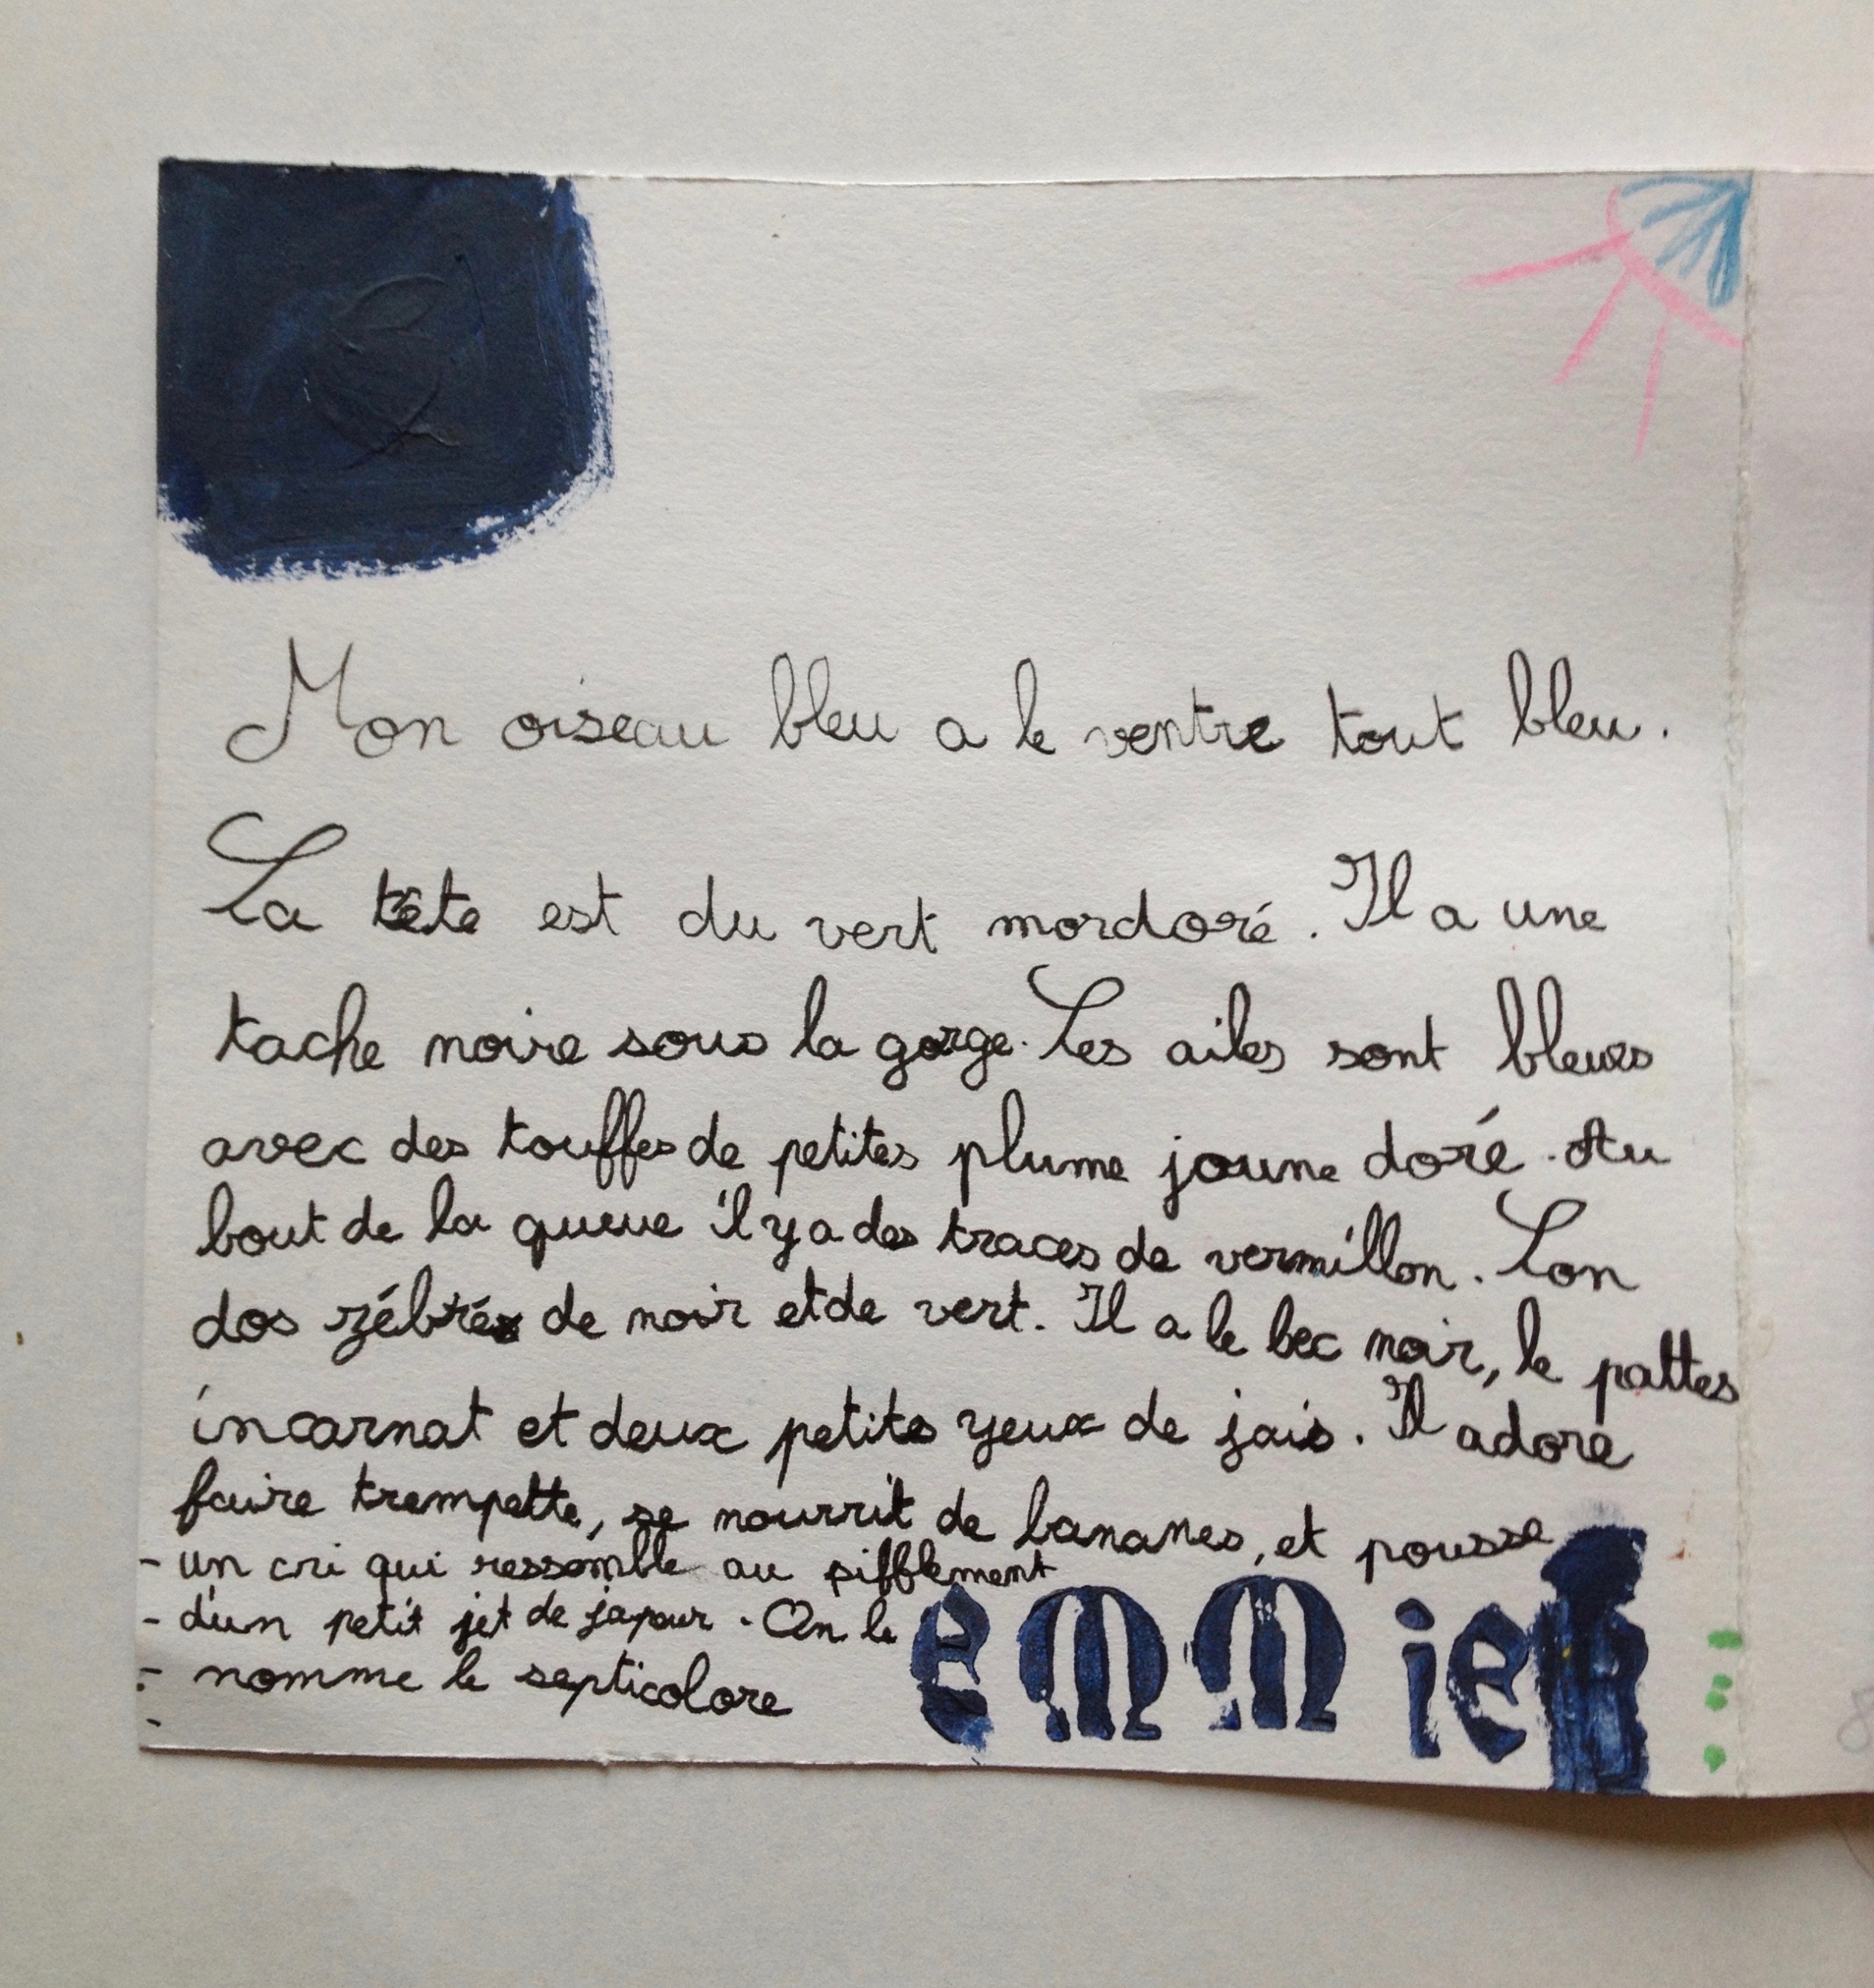 Mon oiseau bleu a le ventre tout bleu.
La tête est du vert mordoré. Il a une
tache noire sous la gorge. Les ailes sont bleues
avec des touffes de petites plume jaune doré. Au
bout de la queue il y a des traces de vermillon. Son
dos zébré de noir et de vert. Il a le bec noir, le pattes
incarnat et deux petits yeux de jais. Il adore
faire trempette, se nourrit de bananes, et pousse
- un cri qui ressemble au sifflement
- d'un petit jet de japeur. On le
- nomme le septicolore
emmie